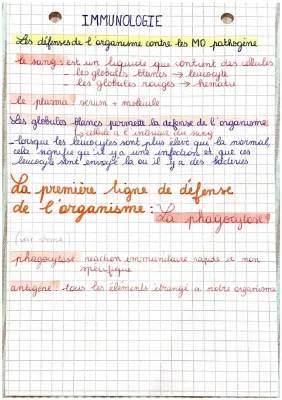 IMMUNOLOGIE
Les défenses de l'organisme contre les MO pathogène
le sang : est un liquide que contient des cellules
- les globules blancs → leucocyte
- les globules rouges → hématie
le plasma : sérum + molécule
Les globules blancs permette la défense de l'organisme
↳ cellule a l'intérieur du sang
- lorsque les leucocytes sont plus élevé que la normal,
cela signifie qu'il y a une infection et que ces
leucocyte sont envoyé la ou il y a des bactéries
La première ligne de défense
de l'organisme : La phagocytose
phagocytose : réaction immunitaire rapide et non
spécifique
antigène : tous les éléments étrangé a notre organisme